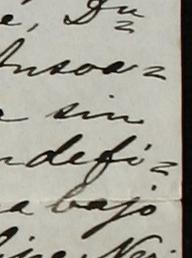 e, Du=
Ansoa=
e sin
ndefi=
a bajo